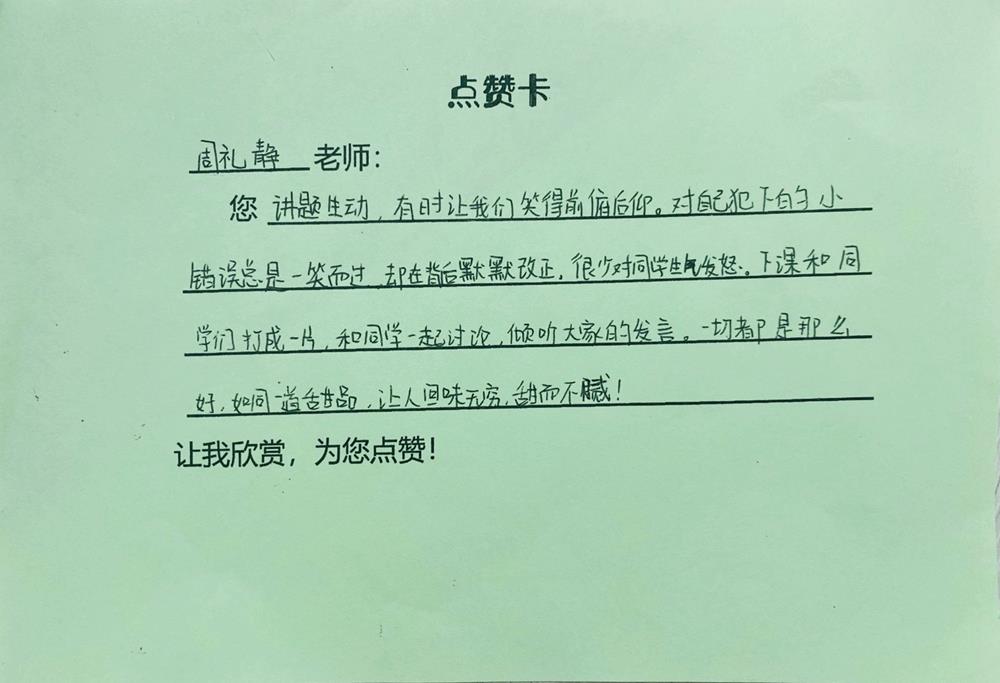 点赞卡
周礼静 老师：
您 讲题生动，有时让我们笑得前俯后仰。对自己犯下的小
错误总是一笑而过，却在背后默默改正，很少对同学生气发怒。下课和同
学们打成一片，和同学一起讨论，倾听大家的发言。一切都是那么
好，如同一道甜品，让人回味无穷，甜而不腻！
让我欣赏，为您点赞！